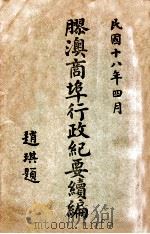 民國十八年四月
膠澳商埠行政紀要續編
趙琪題